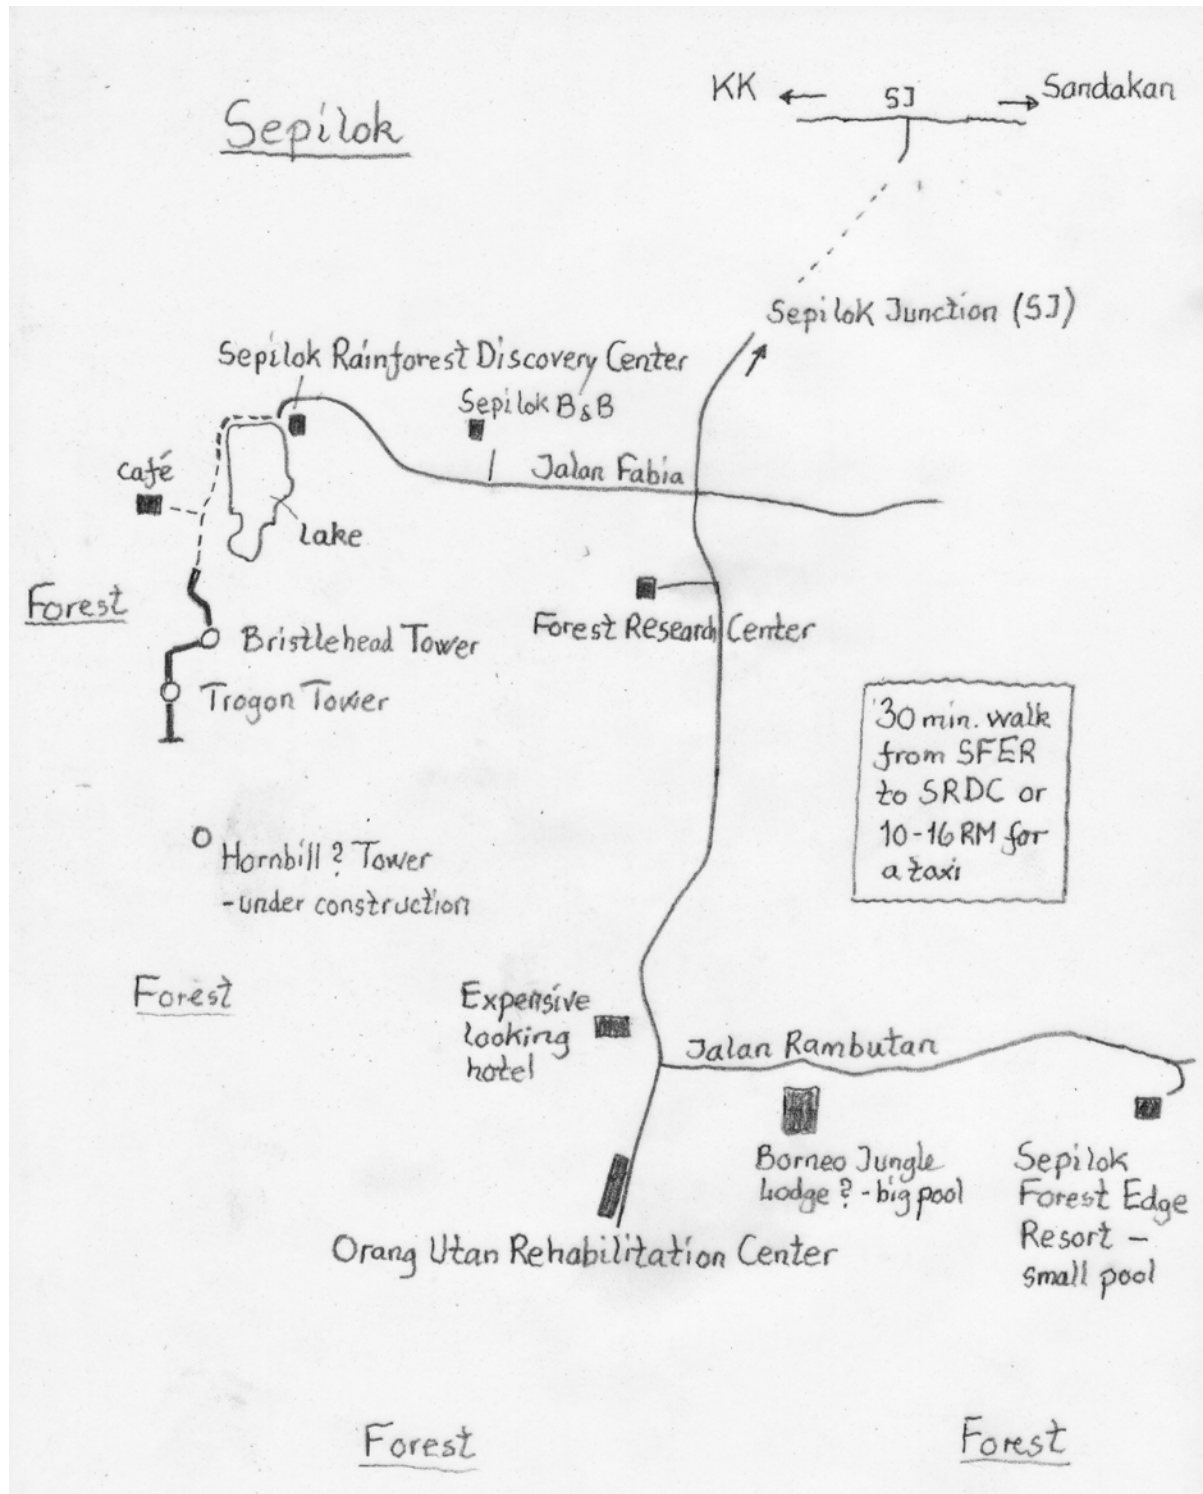 Sepilok
KK ← SJ → Sandakan
Sepilok Junction (SJ)
Sepilok Rainforest Discovery Center
Sepilok B&B
Jalan Fabia
café
Lake
Forest
Forest Research Center
Bristlehead Tower
Trogon Tower
30 min. walk
from SFER
to SRDC or
10-16 RM for
a taxi
Hornbill ? Tower
- under construction
Forest
Expensive
looking
hotel
Jalan Rambutan
Borneo Jungle
Lodge ? - big pool
Sepilok
Forest Edge
Resort -
small pool
Orang Utan Rehabilitation Center
Forest
Forest